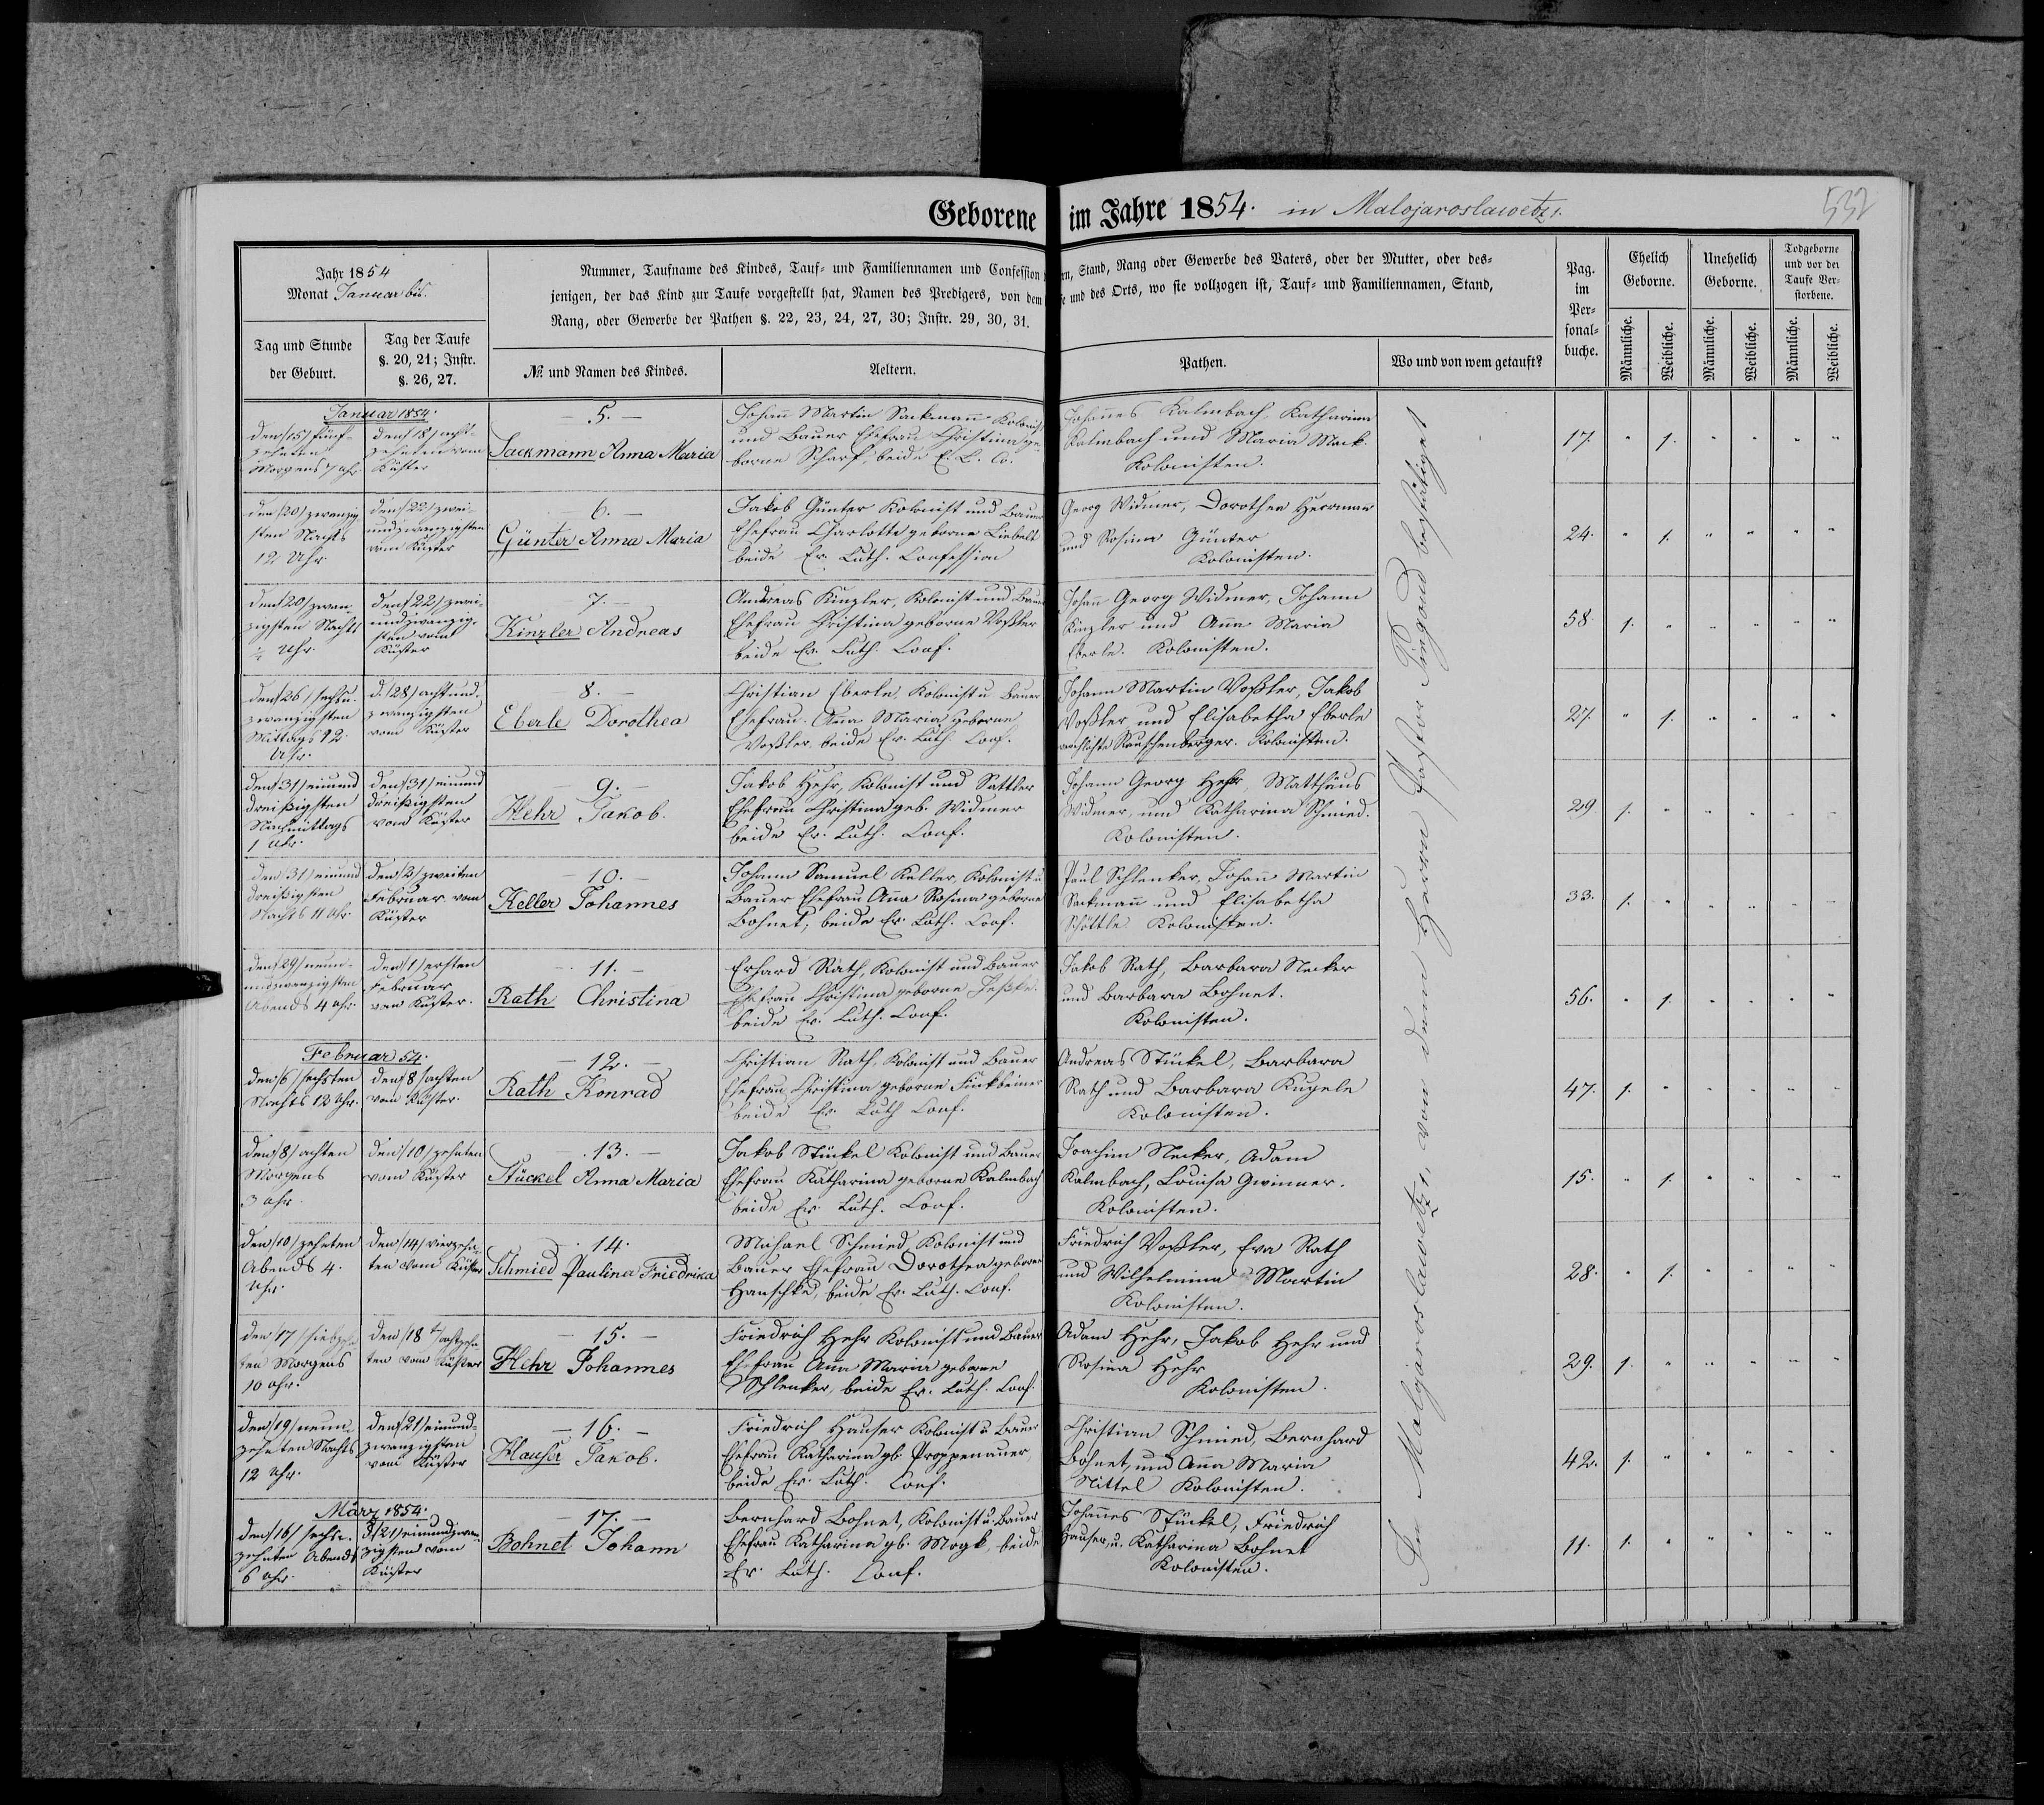 Geborene im Jahre 1854. in Malojaroslawetz 1.
532
Jahr 1854
Monat Januar bis.
Nummer, Taufname des Kindes, Tauf- und Familiennamen und Confession
rn, Stand, Rang oder Gewerbe des Vaters, oder der Mutter, oder des-
jenigen, der das Kind zur Taufe vorgestellt hat, Namen des Predigers, von dem
e und des Orts, wo sie vollzogen ist, Tauf- und Familiennamen, Stand,
Rang, oder Gewerbe der Pathen §. 22, 23, 24, 27, 30; Instr. 29, 30, 31.
Tag und Stunde
der Geburt.
Tag der Taufe
§. 20, 21; Instr.
§. 26, 27.
№ und Namen des Kindes.
Aeltern.
Pathen.
Wo und von wem getauft?
Pag.
im
Per-
sonal-
buche.
Ehelich
Geborne.
Unehelich
Geborne.
Todgeborne
und vor der
Taufe Ver-
storbene.
Männliche.
Weibliche.
Männliche.
Weibliche.
Männliche.
Weibliche.
Januar 1854.
den /15/ fünf-
zehnten
Morgens 7 Uhr
den /18/ acht-
zehnten vom
Küster
- 5. -
Sackmann Anna Maria
Johann Martin Sackmann Kolonist
und Bauer Ehefrau Christina ge-
borne Scharf, beide E. L. Co.
Johannes Kalmbach, Katharina
Kalmbach und Maria Mack.
Kolonisten.
17. " 1. " " " "
den /20/ zwanzig
sten Nachts
12 Uhr
den /22/ zwei-
undzwanzigsten
vom Küster
6. -
Günter Anna Maria
Jakob Günter Kolonist und Bauer
Ehefrau Charlotte geborne Liebelt
beide Ev. Luth. Confession
Georg Widmer, Dorothea Herrmann
und Rosina Günter
Kolonisten.
24. " 1. " " " "
den /20/ zwan-
zigsten Nachts
½ Uhr.
den /22/ zwei-
undzwanzig-
sten vom
Küster
- 7. -
Kinzler Andreas
Andreas Kinzler, Kolonist und Bauer
Ehefrau Christina geborne Voßler
beide Ev. Luth. Conf.
Johann Georg Widmer, Johann
Kinzler und Anna Maria
Eberle. Kolonisten.
58. 1. " " " " "
den /26/ sechsu.
zwanzigsten
Mittags 12
Uhr.
d. /28/ achtund-
zwanzigsten
vom Küster
- 8. -
Eberle Dorothea
Christian Eberle, Kolonist u. Bauer
Ehefrau Anna Maria geborne
Voßler, beide Ev. Luth. Conf.
Johann Martin Voßler, Jakob
Voßler und Elisabetha Eberle
Rauschenberger. Kolonisten.
27. " 1. " " " "
den /31/ einund
dreißigsten
Nachmittags
1 Uhr.
den /31/ einund
dreißigsten
vom Küster
- 9. -
Hehr Jakob.
Jakob Hehr, Kolonist und Sattler
Ehefrau Christina geb. Widmer
beide Ev. Luth. Conf.
Johann Georg Hehr, Matthäus
Widmer, und Katharina Schmied.
Kolonisten.
29. 1. " " " " "
den 31/ einund
dreißigsten
Nachts 11 Uhr
den /2/ zweiten
Februar vom
Küster
- 10. -
Keller Johannes
Johann Samuel Keller, Kolonist u.
Bauer Ehefrau Anna Rosina geborne
Bohnet, beide Ev. Luth. Conf.
Paul Schlenker, Johann Martin
Sackmann und Elisabetha
Schöttle Kolonisten.
33. 1. " " " " "
den /29/ neun-
undzwanzigsten
Abends 4 Uhr.
den /1/ ersten
Februar
vom Küster.
- 11. -
Rath Christina
Erhard Rath, Kolonist und Bauer
Ehefrau Christina geborne Jeßke.
beide Ev. Luth. Conf.
Jakob Rath, Barbara Necker
und Barbara Bohnet.
Kolonisten.
56. " 1. " " " "
Februar 54.
den /6/ sechsten
Nachts 12 Uhr.
den /8/ achten
vom Küster.
- 12. -
Rath Konrad
Christian Rath, Kolonist und Bauer
Ehefrau Christina geborne Finkbeiner
beide Ev. Luth Conf.
Andreas Stückel, Barbara
Rath und Barbara Kugele
Kolonisten.
47. 1. " " " " "
den /8/ achten
Morgens
3 Uhr.
den /10/ zehnten
vom Küster
- 13. -
Stückel Anna Maria
Jakob Stückel Kolonist und Bauer
Ehefrau Katharina geborne Kalmbach
beide Ev. Luth. Conf.
Joachim Necker, Adam
Kalmbach, Louisa Gwinner.
Kolonisten.
15. " 1. " " " "
den /10/ zehnten
Abends 4.
Uhr.
den /14/ vierzehn-
ten vom Küster
- 14.
Schmied Paulina Friedrika
Michael Schmied Kolonist und
Bauer Ehefrau Dorothea geborne
Hanschke, beide Ev. Luth. Conf.
Friedrich Voßler, Eva Rath
und Wilhelmina Martin
Kolonisten.
28. " 1. " " " "
den /17/ siebzehn
ten Morgens
10 Uhr.
den /18/ achtzehn
ten vom Küster
- 15. -
Hehr Johannes
Friedrich Hehr Kolonist und Bauer
Ehefrau Anna Maria geborne
Schlenker, beide Ev. Luth. Conf.
Adam Hehr, Jakob Hehr und
Rosina Hehr
Kolonisten.
29. 1. " " " " "
den /19/ neun-
zehnten Nachts
12 Uhr.
den /21/ einund-
zwanzigsten
vom Küster
- 16. -
Hauser Jakob.
Friedrich Hauser Kolonist u Bauer
Ehefrau Katharina gb. Proppenauer,
beide Ev. Luth. Conf.
Christian Schmied, Bernhard
Bohnet, und Anna Maria
Nittel Kolonisten.
42. 1. " " " " "
März 1854.
den /16/ sechs-
zehnten Abends
6 Uhr.
d. /21/ einundzwan-
zigsten vom
Küster
- 17. -
Bohnet Johann
Bernhard Bohnet, Kolonist u. Bauer
Ehefrau Katharina gb. Mogk, beide
Ev. Luth. Conf.
Johannes Stückel, Friedrich
Hauser, u. Katharina Bohnet
Kolonisten.
11. 1. " " " " "
In Malojaroslawetz 1, von dem Herrn Pastor Pingoud bestätiget